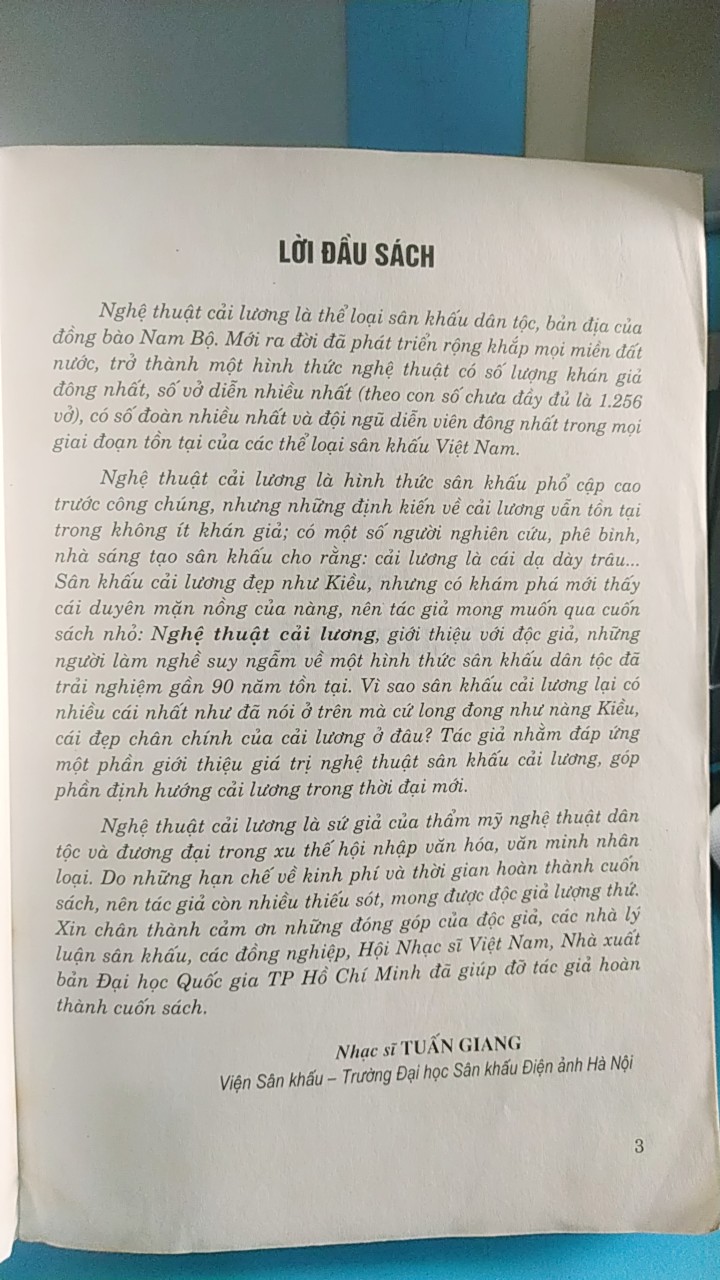 LỜI ĐẦU SÁCH
Nghệ thuật cải lương là thể loại sân khấu dân tộc, bản địa của
đồng bào Nam Bộ. Mới ra đời đã phát triển rộng khắp mọi miền đất
nước, trở thành một hình thức nghệ thuật có số lượng khán giả
đông nhất, số vở diễn nhiều nhất (theo con số chưa đầy đủ là 1.256
vở), có số đoàn nhiều nhất và đội ngũ diễn viên đông nhất trong mọi
giai đoạn tồn tại của các thể loại sân khấu Việt Nam.
Nghệ thuật cải lương là hình thức sân khấu phổ cập cao
trước công chúng, nhưng những định kiến về cải lương vẫn tồn tại
trong không ít khán giả; có một số người nghiên cứu, phê bình,
nhà sáng tạo sân khấu cho rằng: cải lương là cái dạ dày trâu...
Sân khấu cải lương đẹp như Kiều, nhưng có khám phá mới thấy
cái duyên mặn nồng của nàng, nên tác giả mong muốn qua cuốn
sách nhỏ: Nghệ thuật cải lương, giới thiệu với độc giả, những
người làm nghề suy ngẫm về một hình thức sân khấu dân tộc đã
trải nghiệm gần 90 năm tồn tại. Vì sao sân khấu cải lương lại có
nhiều cái nhất như đã nói ở trên mà cứ long đong như nàng Kiều,
cái đẹp chân chính của cải lương ở đâu? Tác giả nhằm đáp ứng
một phần giới thiệu giá trị nghệ thuật sân khấu cải lương, góp
phần định hướng cải lương trong thời đại mới.
Nghệ thuật cải lương là sứ giả của thẩm mỹ nghệ thuật dân
tộc và đương đại trong xu thế hội nhập văn hóa, văn minh nhân
loại. Do những hạn chế về kinh phí và thời gian hoàn thành cuốn
sách, nên tác giả còn nhiều thiếu sót, mong được độc giả lượng thứ.
Xin chân thành cảm ơn những đóng góp của độc giả, các nhà lý
luận sân khấu, các đồng nghiệp, Hội Nhạc sĩ Việt Nam, Nhà xuất
bản Đại học Quốc gia TP Hồ Chí Minh đã giúp đỡ tác giả hoàn
thành cuốn sách.
Nhạc sĩ TUẤN GIANG
Viện Sân khấu – Trường Đại học Sân khấu Điện ảnh Hà Nội
3